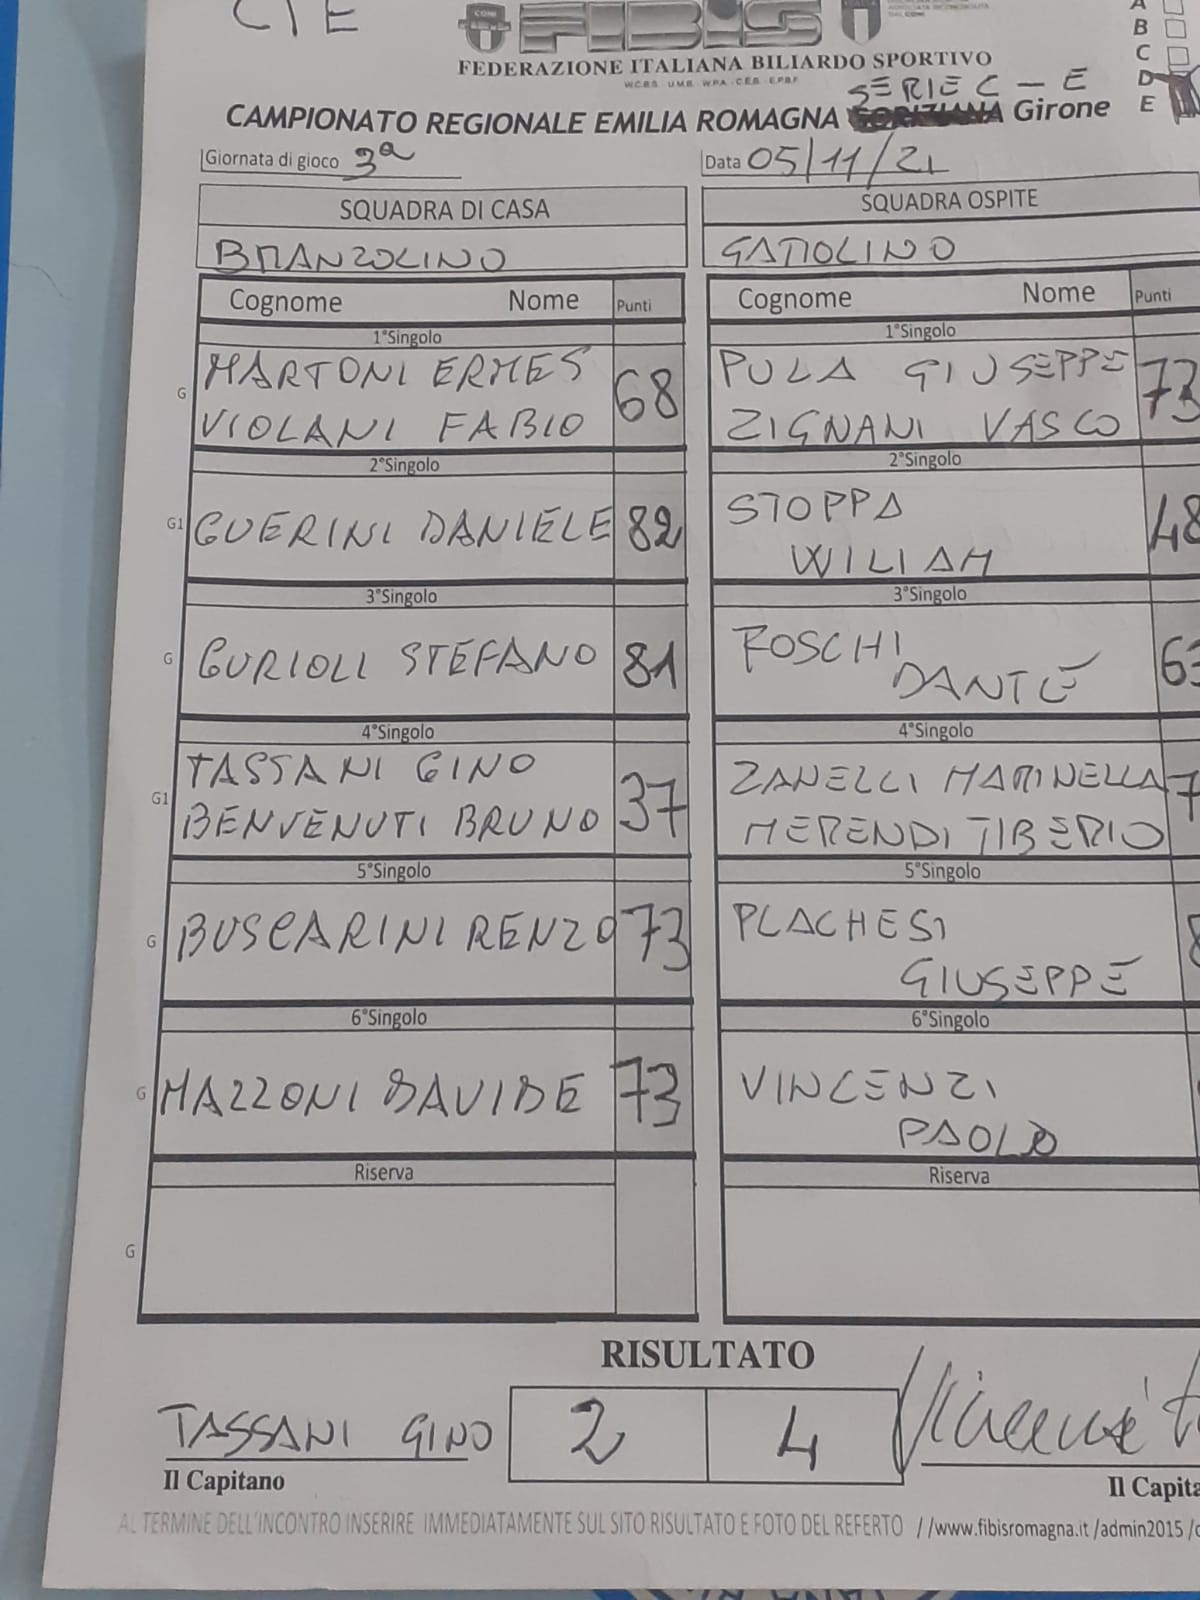 CIE
FIBIS
FEDERAZIONE ITALIANA BILIARDO SPORTIVO
W.C.B.S - U.M.B - W.P.A - C.E.B - E.P.B.F
A
B
C
D
E
SERIE C - E
CAMPIONATO REGIONALE EMILIA ROMAGNA GORIZIANA Girone
Giornata di gioco 3ª Data 05/11/21
SQUADRA DI CASA SQUADRA OSPITE
BRANZOLINO GATTOLINO
Cognome Nome Punti Cognome Nome Punti
1°Singolo 1°Singolo
G MARTONI ERMES 68 PULA GIUSEPPE 73
VIOLANI FABIO ZIGNANI VASCO
2°Singolo 2°Singolo
G1 GUERINI DANIELE 82 STOPPA 48
WILIAM
3°Singolo 3°Singolo
G GURIOLI STEFANO 81 FOSCHI 63
DANTE
4°Singolo 4°Singolo
G1 TASSANI GINO 37 ZANELLI MARINELLA 7
BENVENUTI BRUNO MERENDI TIBERIO
5°Singolo 5°Singolo
G BUSCARINI RENZO 73 PLACHESI 8
GIUSEPPE
6°Singolo 6°Singolo
G MAZZONI DAVIDE 73 VINCENZI
PAOLO
Riserva Riserva
G
RISULTATO
TASSANI GINO 2 4
Il Capitano Il Capita
AL TERMINE DELL'INCONTRO INSERIRE IMMEDIATAMENTE SUL SITO RISULTATO E FOTO DEL REFERTO //www.fibisromagna.it /admin2015 /